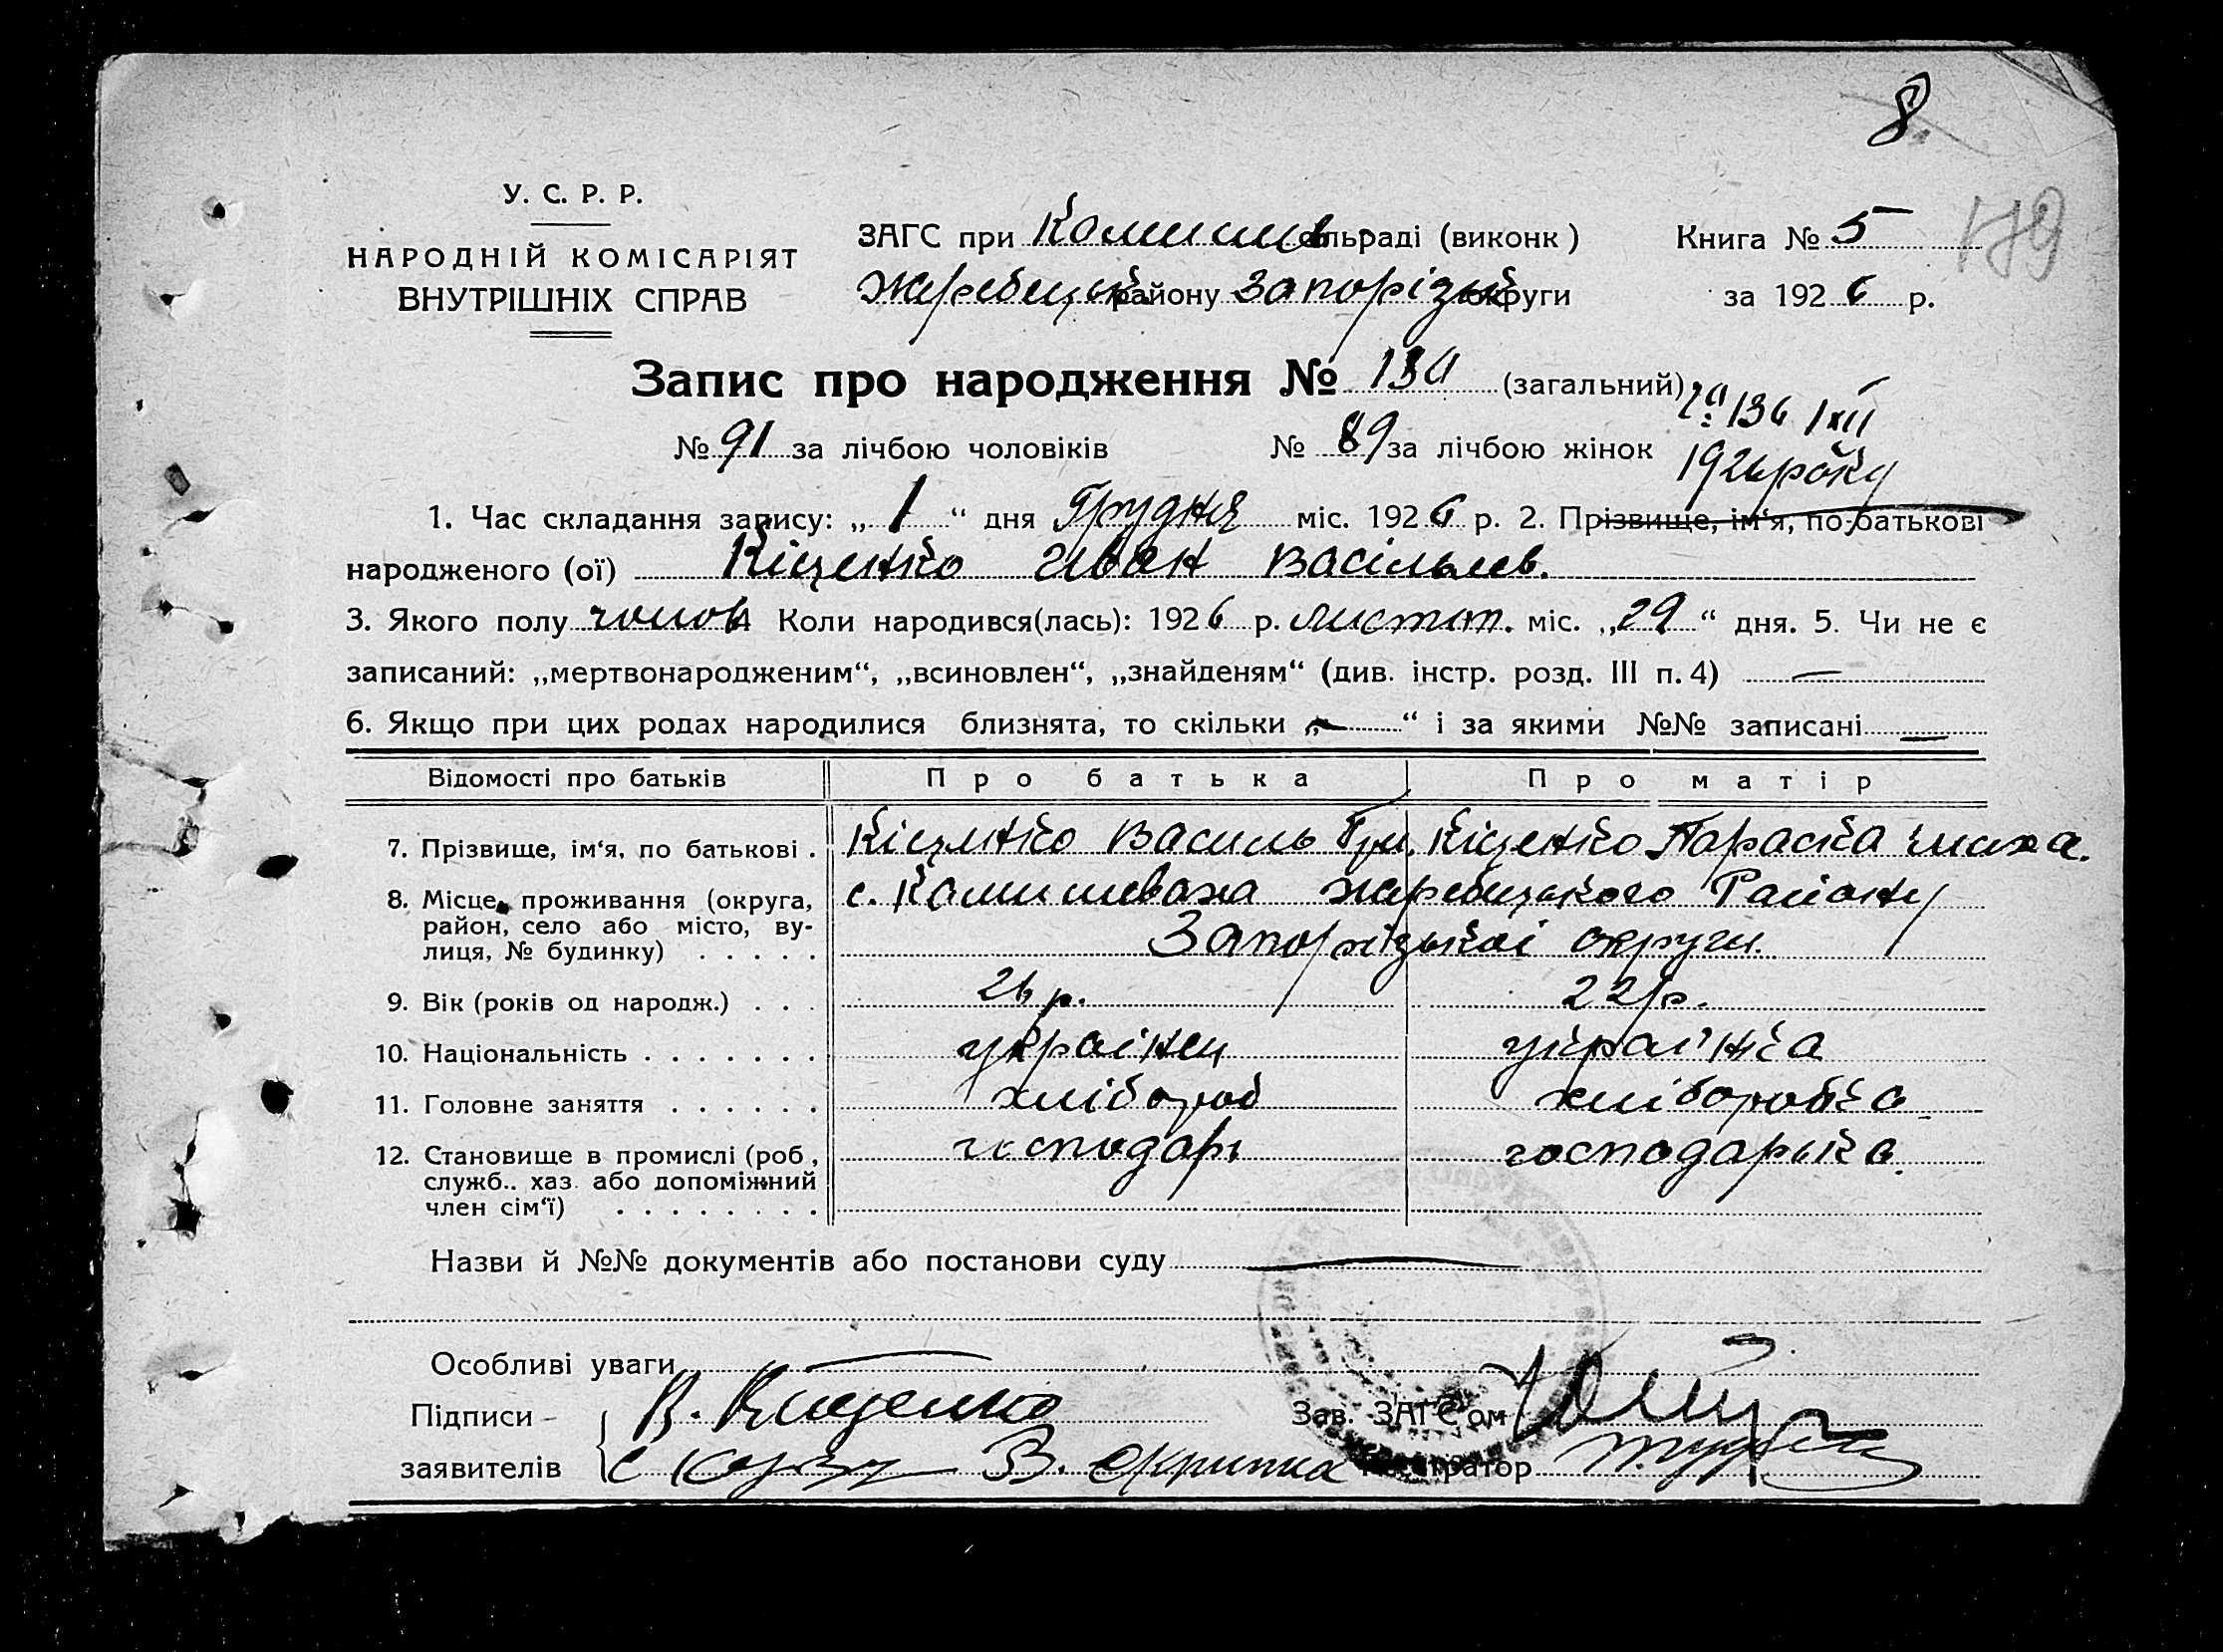 8
179
У. С. Р. Р.
НАРОДНІЙ КОМІСАРІЯТ
ВНУТРІШНІХ СПРАВ
ЗАГС при Комишев сільраді (виконк)
Жеребецьк району Запорізьк округи
Книга № 5
за 1926 р.
Запис про народження № 180 (загальний)
№ 91 за лічбою чоловіків № 89 за лічбою жінок
136 1 XII
1926 року
1. Час складання запису: „1“ дня Грудня міс. 1926 р. 2. Прізвище, ім‘я, по-батькові
народженого (ої) Кіценко Иван Васільев.
3. Якого полу чолов 4 Коли народився(лась): 1926 р. листоп. міс. „29“ дня. 5. Чи не є
записаний: „мертвонародженим“, „всиновлен“, „знайденям“ (див. інстр. розд. III п. 4) —
6. Якщо при цих родах народилися близнята, то скільки „—“ і за якими №№ записані —
Відомості про батьків Про батька Про матір
7. Прізвище, ім‘я, по батькові . Кіценко Василь Кіценко Параска
8. Місце проживання (округа, с. Комишеваха жеребецького Района
район, село або місто, ву- Запорізької округи.
лиця, № будинку) . . . . .
9. Вік (років од народж.) . . . 26 р. 22 р.
10. Національність . . . . . . . українец украі'нка
11. Головне заняття . . . . . . хлібороб хлібородка
12. Становище в промислі (роб., господарь господарька.
служб., хаз. або допоміжний
член сім‘ї) . . . . . . . .
Назви й №№ документів або постанови суду —
Особливі уваги —
Підписи В. Киценко Зав. ЗАГС'ом
заявителів В. Скрипка Реєстратор